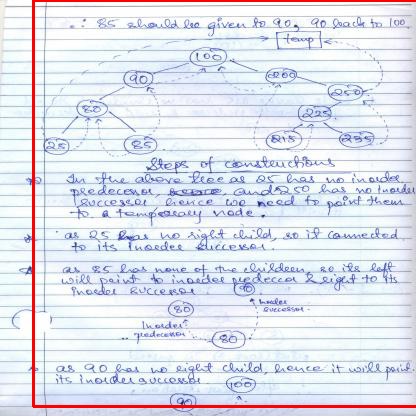 ∴ 85 should be given to 90, 90 back to 100.
temp
100
90
200
250
80
225
25
85
215
235
Steps of constructions
In the above tree as 25 has no inorder
predecessor, and 250 has no inorder
successor, hence we need to point them
to a temporary node.
as 25 has no right child, so it connected
to its inorder successor.
as 85 has none of the children, so its left
will point to inorder predeccor & right to its
inorder successor.
90
80
Inorder
successor.
Inorder
predecessor
80
as 90 has no right child, hence it will point
its inorder successor
100
90